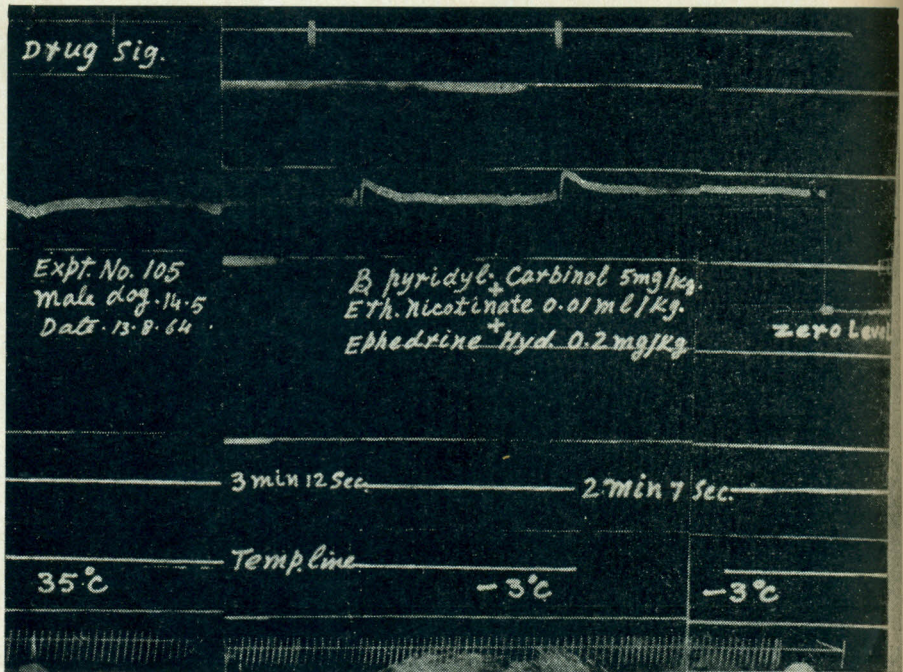 Drug Sig.
Expt. No. 105
male dog. 14.5
Date. 13.8.64.
B pyridyl. Carbinol 5mg/kg.
+
Eth. nicotinate 0.01 ml/kg.
+
Ephedrine Hyd 0.2 mg/kg
zero Level
3 min 12 Sec.
2 min 7 Sec.
Temp. line
35°c
-3°c
-3°c